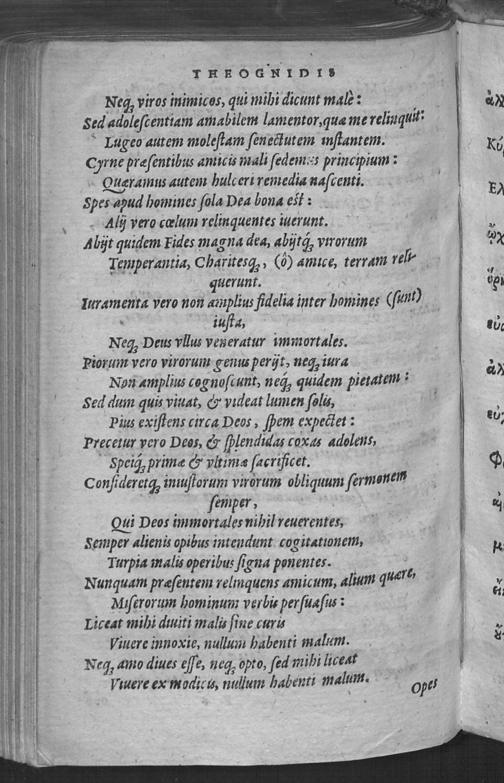 THEOGNIDIS
Neqꝫ viros inimicos, qui mihi dicunt malè:
Sed adoleſcentiam amabilem lamentor,quæ me relinquit:
Lugeo autem moleſtam ſenectutem inſtantem.
Cyrne præſentibus amicis mali ſedemus principium:
Quæramus autem hulceri remedia naſcenti.
Spes apud homines ſola Dea bona eſt:
Alij vero cœlum relinquentes iuerunt.
Abijt quidem Fides magna dea, abijtqꝫ́ virorum
Temperantia, Charitesqꝫ, (ô) amice, terram reli-
querunt.
Iuramenta vero non amplius fidelia inter homines (ſunt)
iuſta,
Neqꝫ Deus vllus veneratur immortales.
Piorum vero virorum genus perijt, neqꝫ iura
Non amplius cognoſcunt, neqꝫ́ quidem pietatem:
Sed dum quis viuat, & videat lumen ſolis,
Pius exiſtens circa Deos, ſpem expectet:
Precetur vero Deos, & ſplendidas coxas adolens,
Speiqꝫ́ primæ & vltimæ ſacrificet.
Conſideretqꝫ iniuſtorum virorum obliquum ſermonem
ſemper,
Qui Deos immortales nihil reuerentes,
Semper alienis opibus intendunt cogitationem,
Turpia malis operibus ſigna ponentes.
Nunquam præſentem relinquens amicum, alium quære,
Miſerorum hominum verbis perſuaſus:
Liceat mihi diuiti malis ſine curis
Viuere innoxie, nullum habenti malum.
Neqꝫ amo diues eſſe, neqꝫ opto, ſed mihi liceat
Viuere ex modicis, nullum habenti malum.
Opes